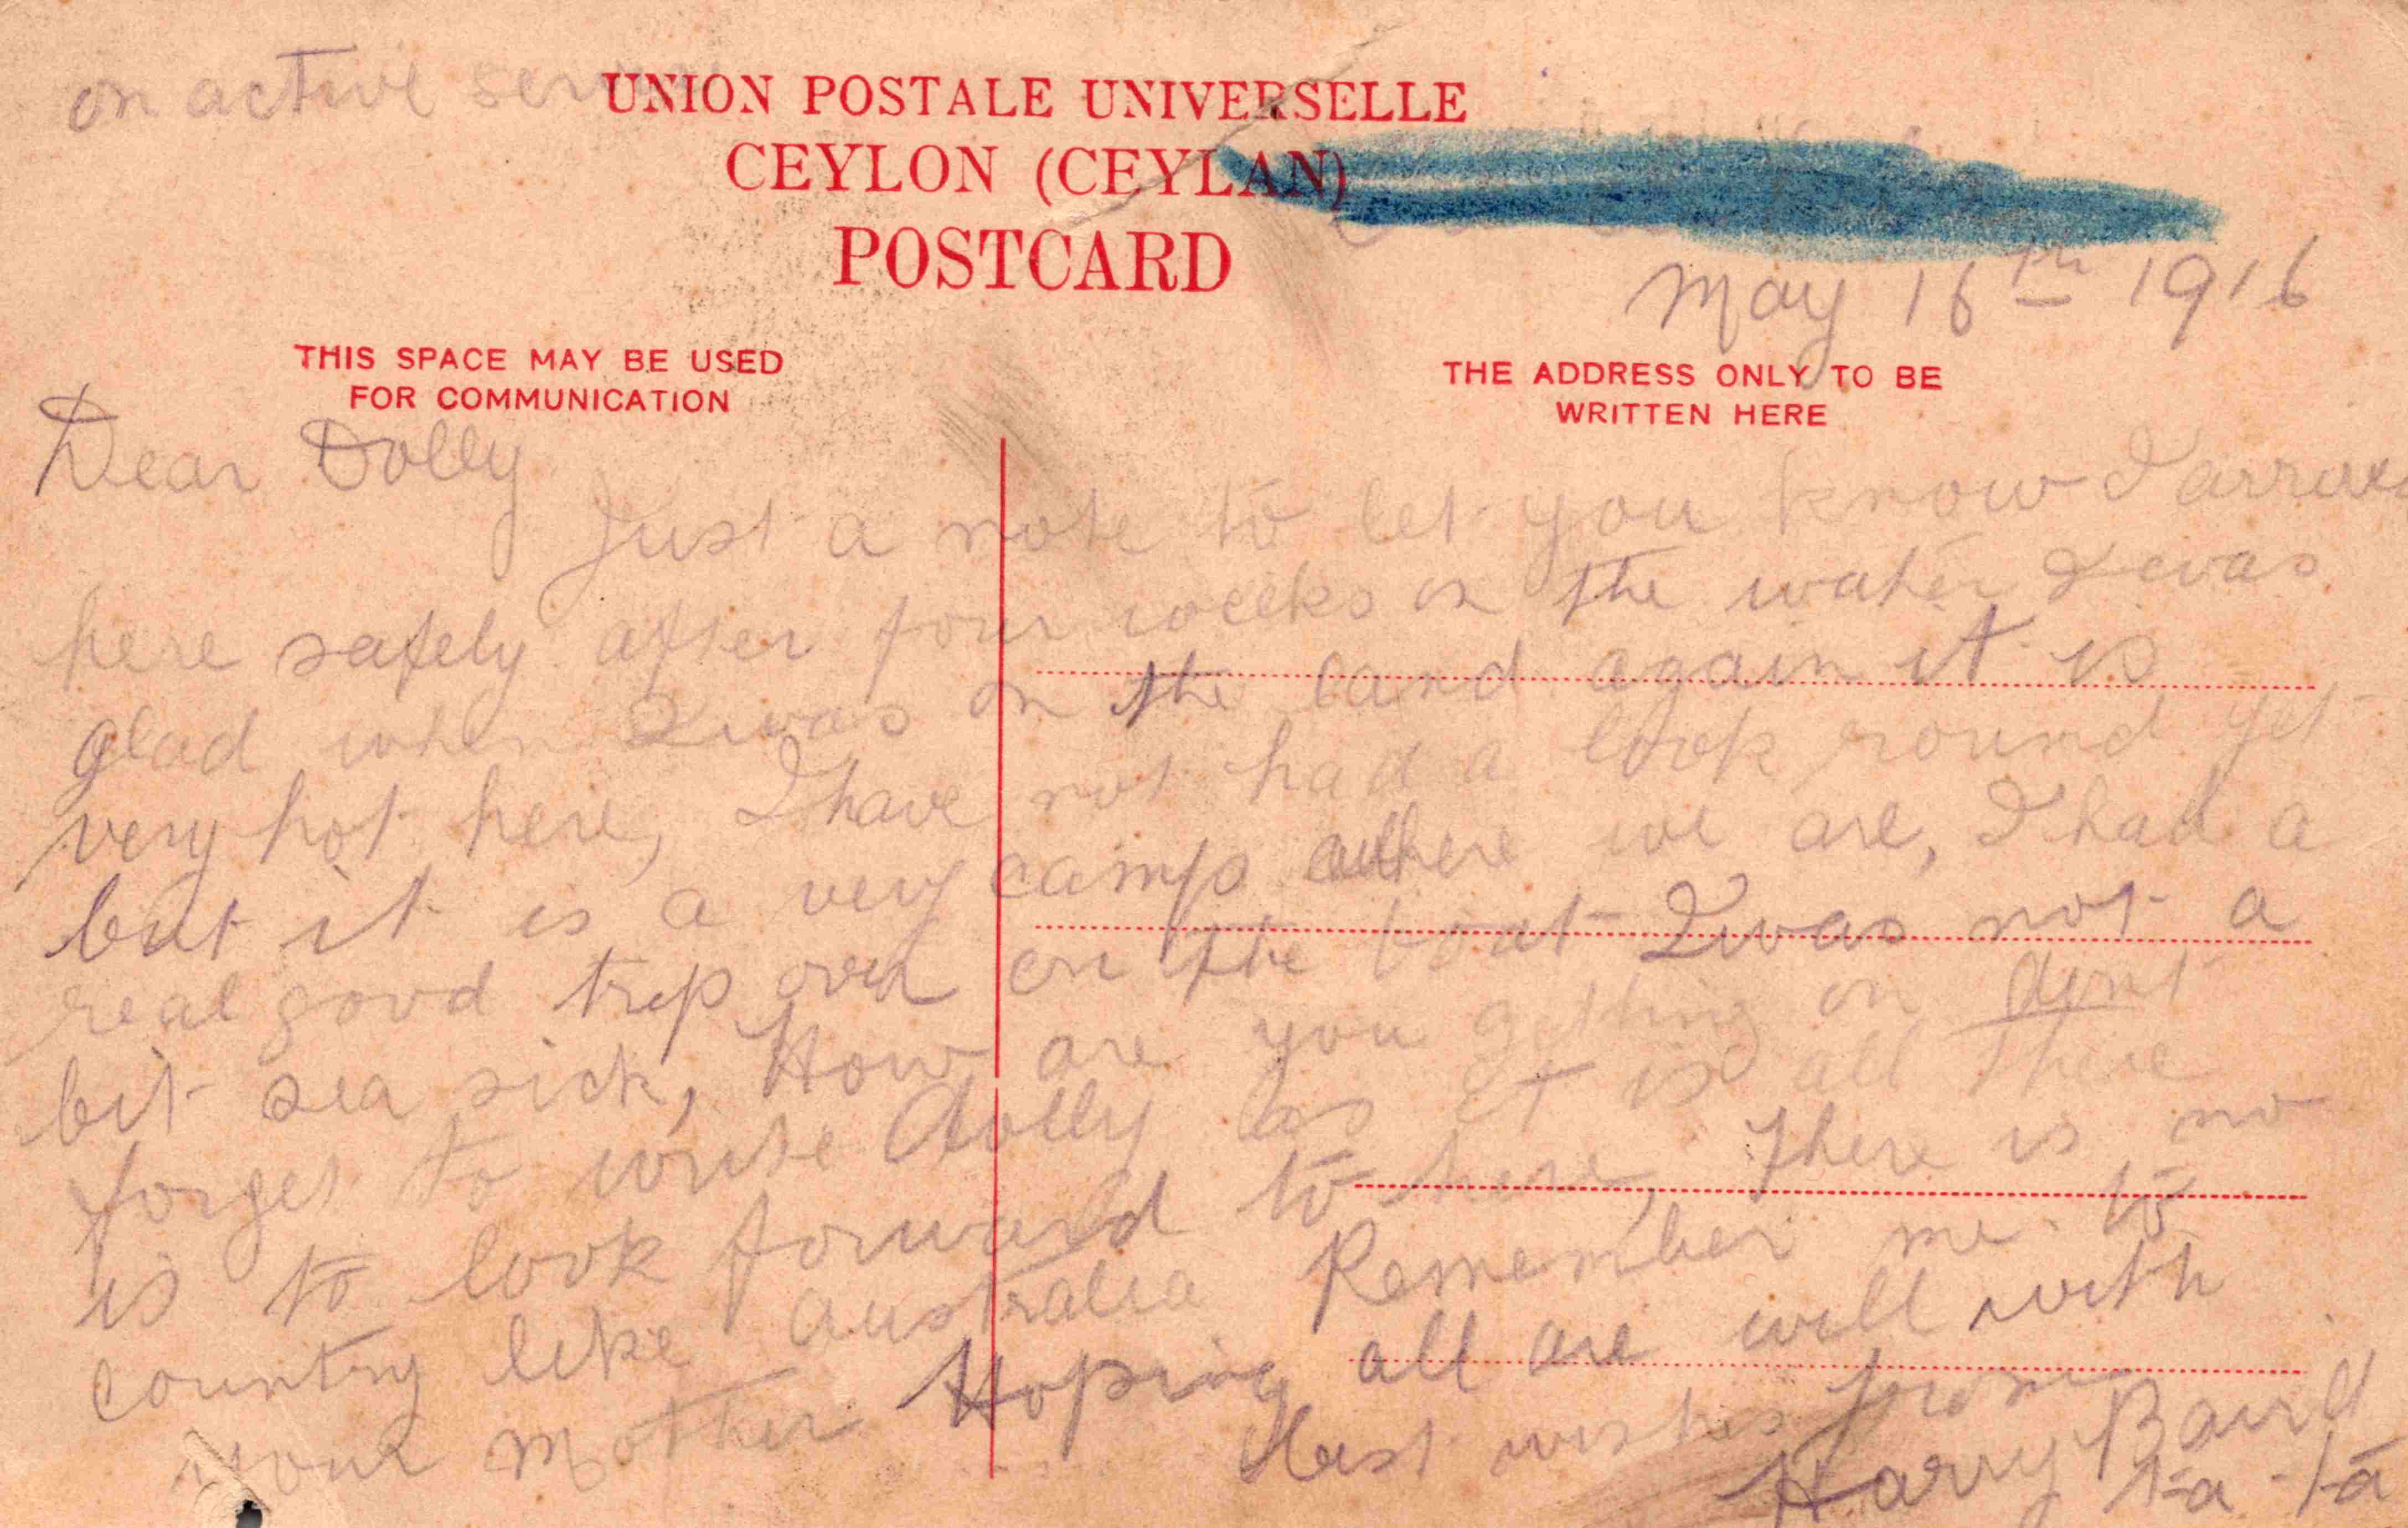 on active service
UNION POSTALE UNIVERSELLE
CEYLON (CEYLAN)
POSTCARD
May 16th 1916
THIS SPACE MAY BE USED
FOR COMMUNICATION
THE ADDRESS ONLY TO BE
WRITTEN HERE
Dear Dolly
Just a note to let you know I arrived
here safely after four weeks on the water I was
glad when I was on the land again it is
very hot here, I have not had a look round yet
but it is a very camp where we are, I had a
real good trip over on the boat I was not a
bit sea sick, How are you getting on dont
forget to write dolly as it is all there
is to look forward to here, There is no
country like australia Remember me to
your mother Hoping all are well with
Best wishes from
Harry Baird
ta-ta